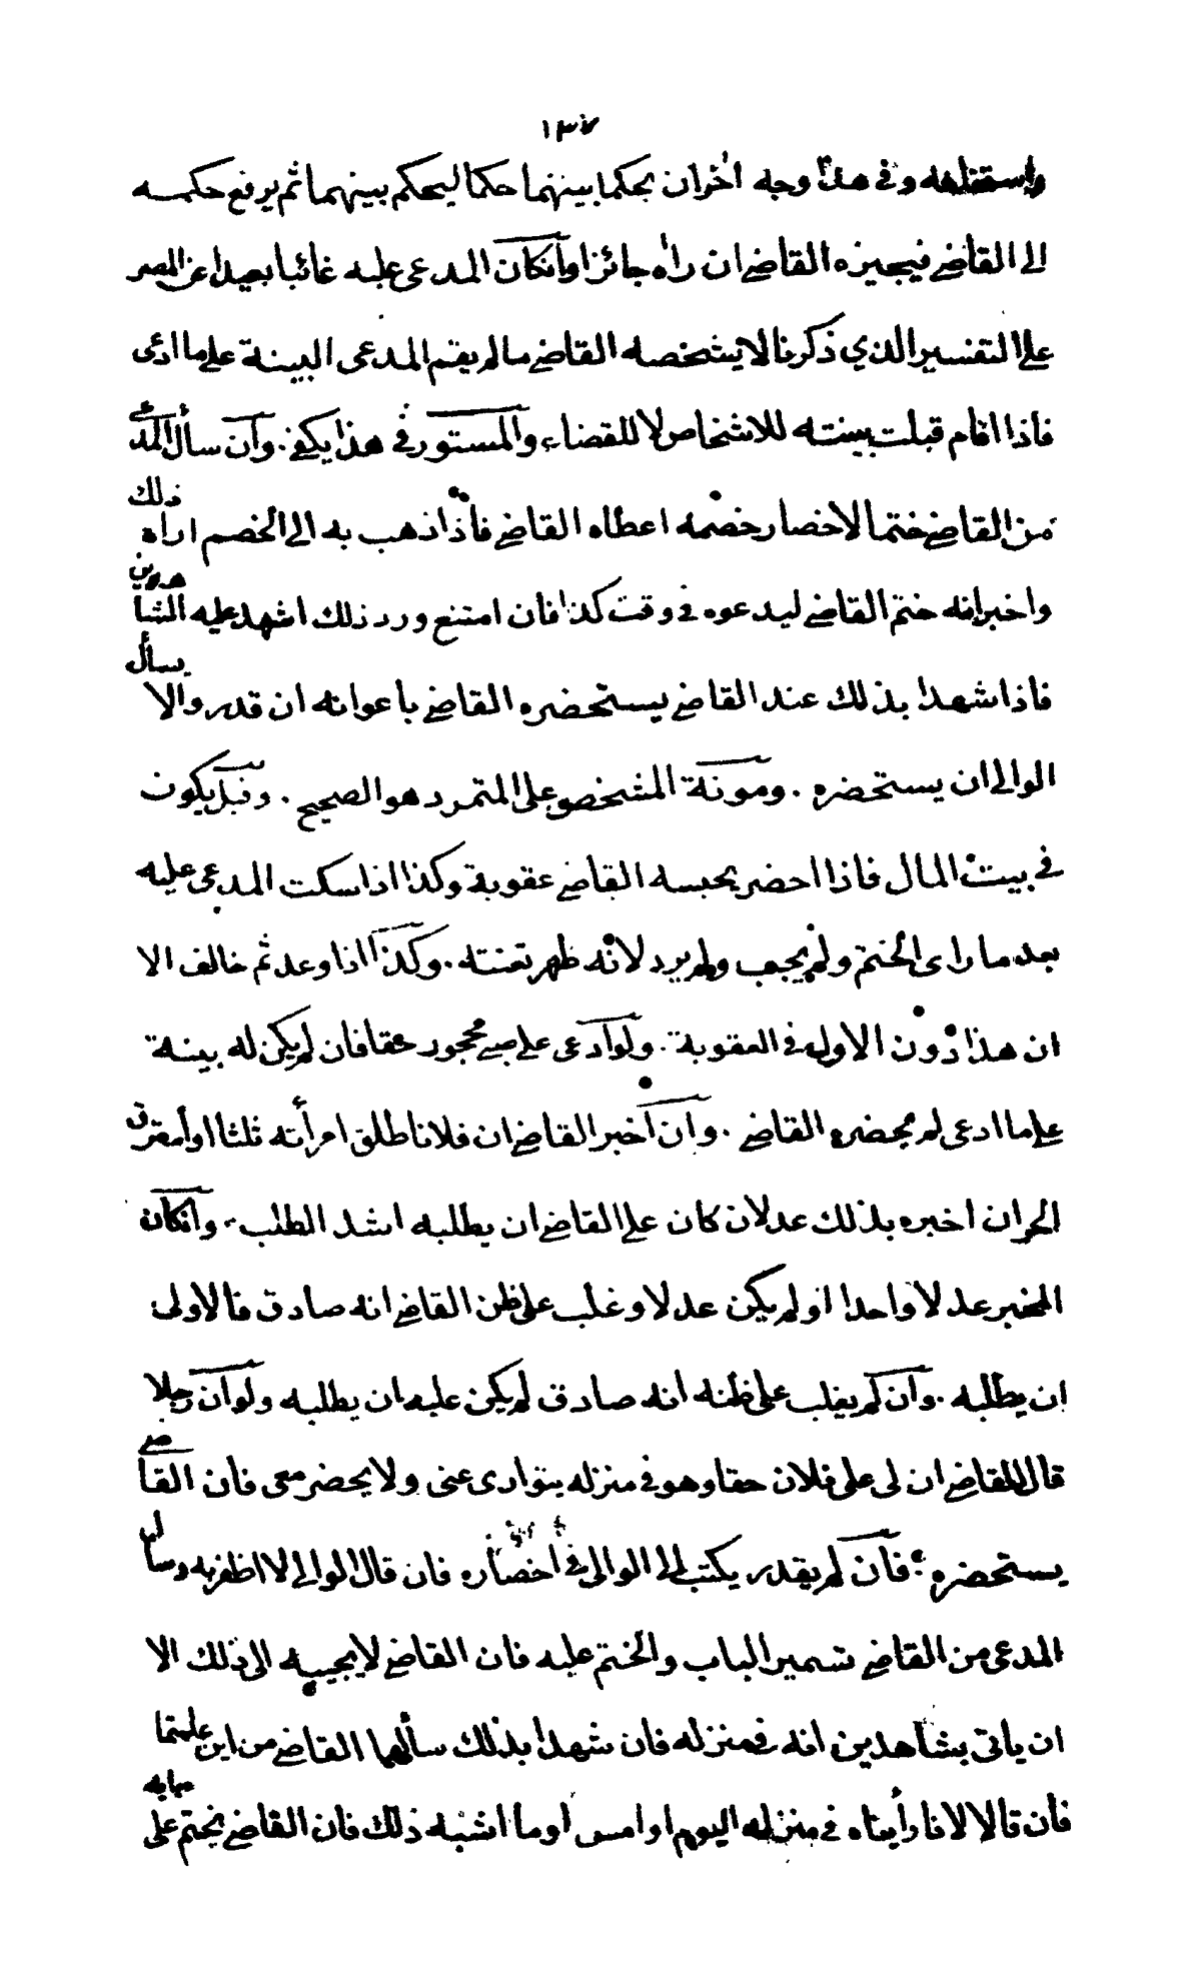 ١٣٧
واستقضاه وفي هذا وجه اخران يحكما بينهما حكما ليحكم بينهما ثم يرفع حكمه
الى القاضي فيجيزه القاضي ان راه جائزا وانكان المدعى عليه غائبا بعيدا عن المصر
على التفسير الذي ذكرنا لا يشخصه القاضي ما لم يقم المدعى البينة على ما ادعى
فاذا اقام قبلت بينته للاشخاص لا للقضاء والمستور في هذا يكفي . وان سأل المدعي
من القاضي ختما لاحضار خصمه اعطاه القاضي فاذا ذهب به الى الخصم اراه ذلك
واخبر انه ختم القاضي ليدعوه في وقت كذا فان امتنع ورد ذلك اشهد عليه الشاهدين
فاذا شهدا بذلك عند القاضي يستحضره القاضي باعوانه ان قدر والا يسأل
الوالي ان يستحضره . ومونة المشخص على المتمرد هو الصحيح . وقيل يكون
في بيت المال فاذا احضر يحبسه القاضي عقوبة وكذا اذا سكت المدعى عليه
بعد ما راى الختم ولم يجب ولم يرد لانه ظهر تعنته . وكذا اذا وعد ثم خالف الا
ان هذا دون الاول في العقوبة . ولو ادعى على صبي محجور حقا فان لم يكن له بينة
على ما ادعى لم يحضره القاضي . وان اخبر القاضي ان فلانا طلق امرأته ثلثا او استرق
الحران اخبره بذلك عدلان كان على القاضي ان يطلبه اشد الطلب . وانكان
المخبر عدلا واحدا او لم يكن عدلا وغلب على ظن القاضي انه صادق فالاولى
ان يطلبه . وان لم يغلب على ظنه انه صادق لم يكن عليه ان يطلبه ولو ان رجلا
قال للقاضي ان لى على فلان حقا وهو في منزله يتوارى عنى ولا يحضر معى فان القاضي
يستحضره فان لم يقدر يكتب الى الوالى في احضاره فان قال الوالي لا اظفر به وسأل
المدعى من القاضي تسمير الباب والختم عليه فان القاضي لا يجيبه الى ذلك الا
ان ياتى بشاهدين انه في منزله فان شهدا بذلك سألهما القاضي من اين علمتما
فان قالا لانا رأيناه في منزله اليوم او امس او ما اشبه ذلك فان القاضي يختم على بابه